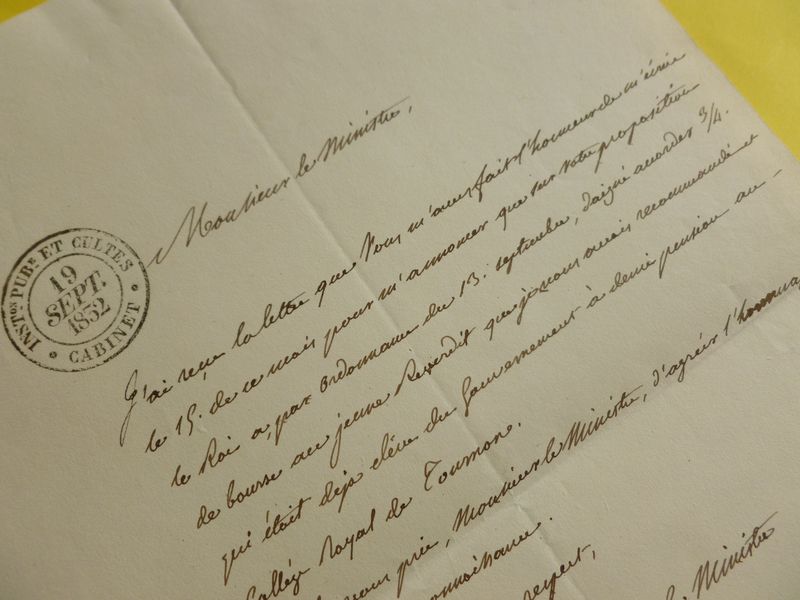 INST.ON PUB.E ET CULTES
19
SEPT.
1832
CABINET
Monsieur le Ministre,
J'ai reçu la lettre que Vous m'avez fait l'honneur de m'écrire
le 15. de ce mois pour m'annoncer que sur votre proposition
le Roi a, par ordonnance du 13. septembre, daigné accorder 3/4.
de bourse au jeune que je vous avais recommandé et
qui était déjà élève du Gouvernement à demie pension au-
Collége royal de Tournon.
vous prie, Monsieur le Ministre, d'agréer l'hommage
respect,
Ministre